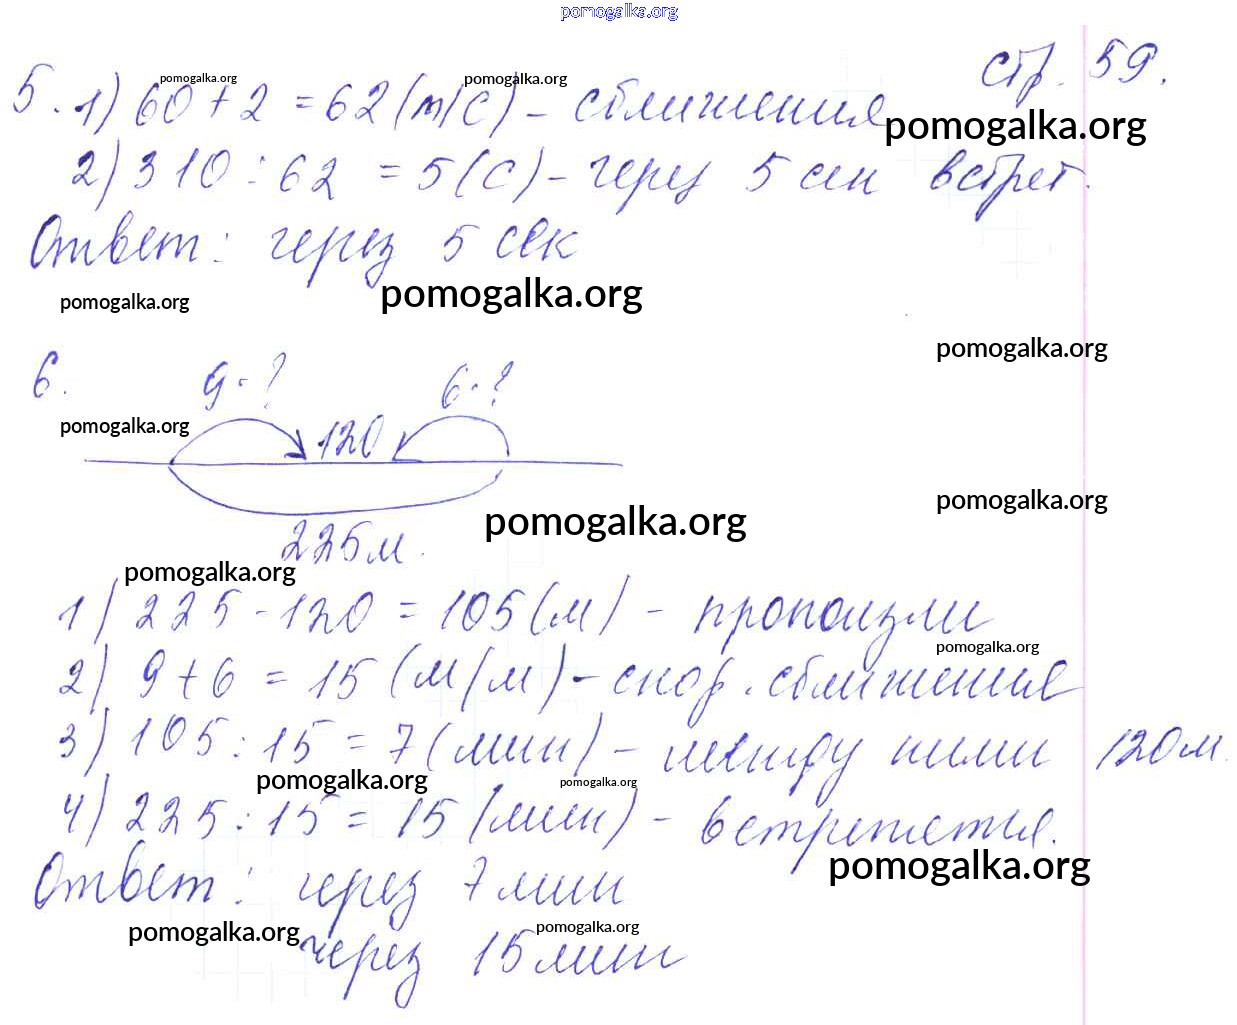 pomogalka.org
стр. 59.
pomogalka.org pomogalka.org
5. 1) 60 + 2 = 62 (м/с) - сближения
pomogalka.org
2) 310 : 62 = 5 (с) - через 5 сек встрет.
Ответ: через 5 сек
pomogalka.org pomogalka.org
pomogalka.org
6. 9·? 6·?
pomogalka.org 120
pomogalka.org pomogalka.org
225 м.
pomogalka.org
1) 225 - 120 = 105 (м) - проползли
pomogalka.org
2) 9 + 6 = 15 (м/м) - скор. сближения
3) 105 : 15 = 7 (мин) - между ними 120 м.
pomogalka.org pomogalka.org
4) 225 : 15 = 15 (мин) - встретятся.
pomogalka.org
Ответ: через 7 мин
pomogalka.org pomogalka.org
через 15 мин